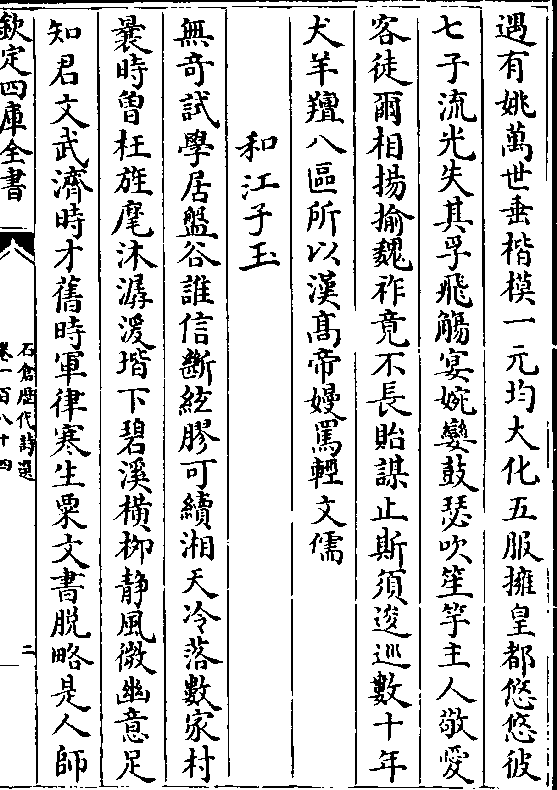 遇有姚萬世垂楷模一元均大化五服擁皇都悠悠彼
七子流光失其孚飛觴宴婉孌鼓瑟吹笙竽主人敬愛
客徒爾相揚揄魏祚竟不長貽謀止斯須逡巡數十年
犬羊羶八區所以漢髙帝嫚罵輕文儒
和江子玉
無竒試學居盤谷誰信斷絃膠可續湘天冷落數家村
曩時曽枉旌麾沐潺湲堦下碧溪横栁静風微幽意足
知君文武濟時才舊時軍律寒生粟文書脱略是人師
欽定四庫全書
石倉歴代詩選
卷一百八十四
二